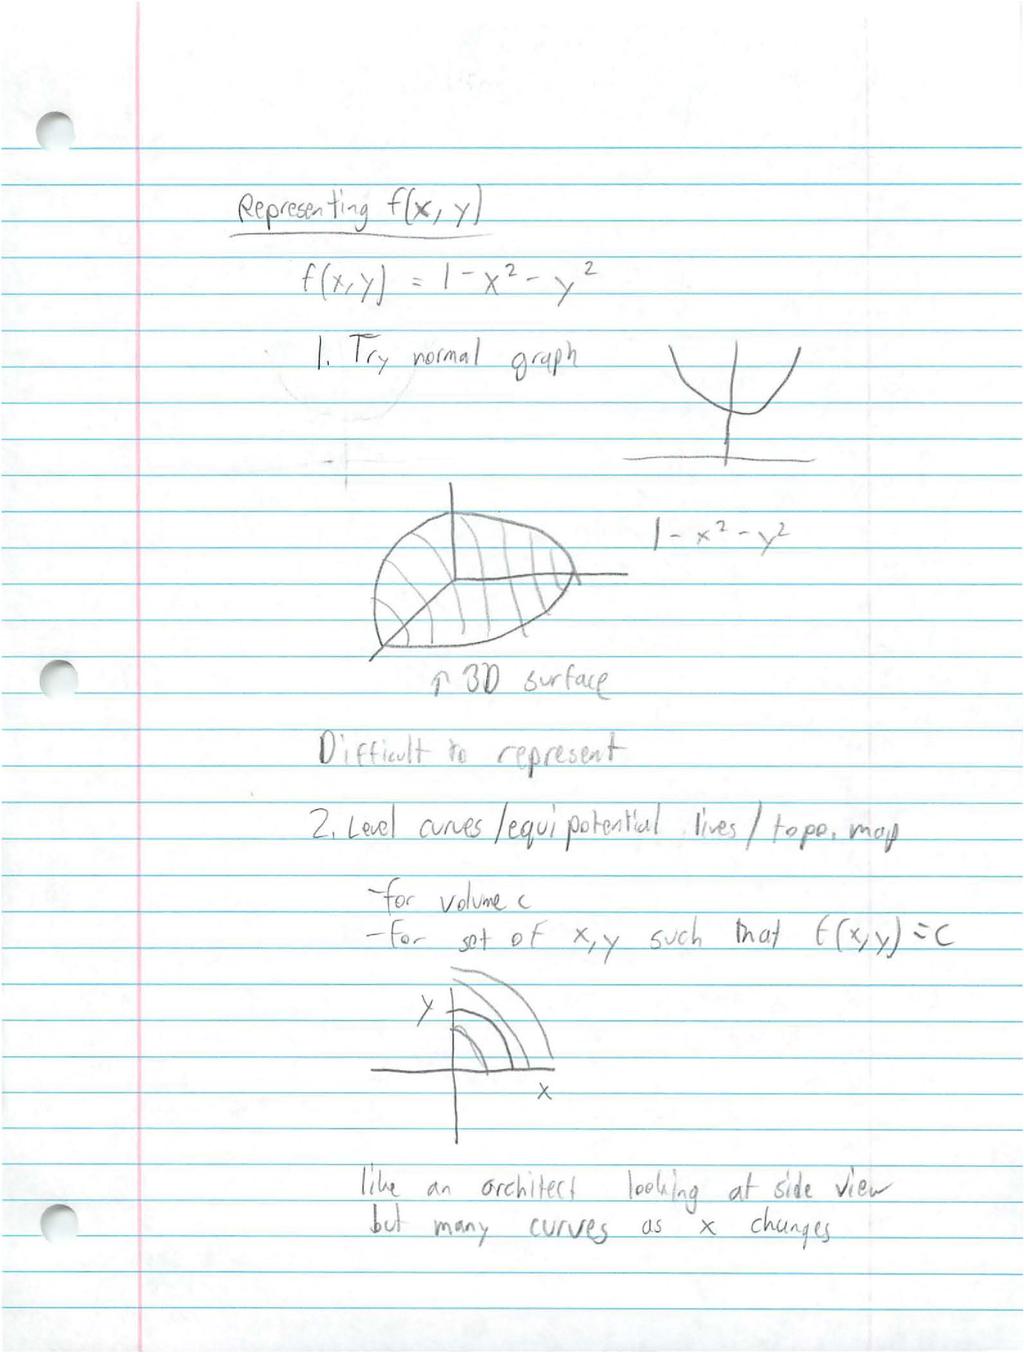 Representing f(x, y)
f(x,y) = 1 - x² - y²
1. Try normal graph
1 - x² - y²
↑ 3D surface
Difficult to represent
2. Level curves/equipotential lives/topo. map
-for volume c
-for set of x,y such that f(x,y) = c
y
x
like an architect looking at side view
but many curves as x changes